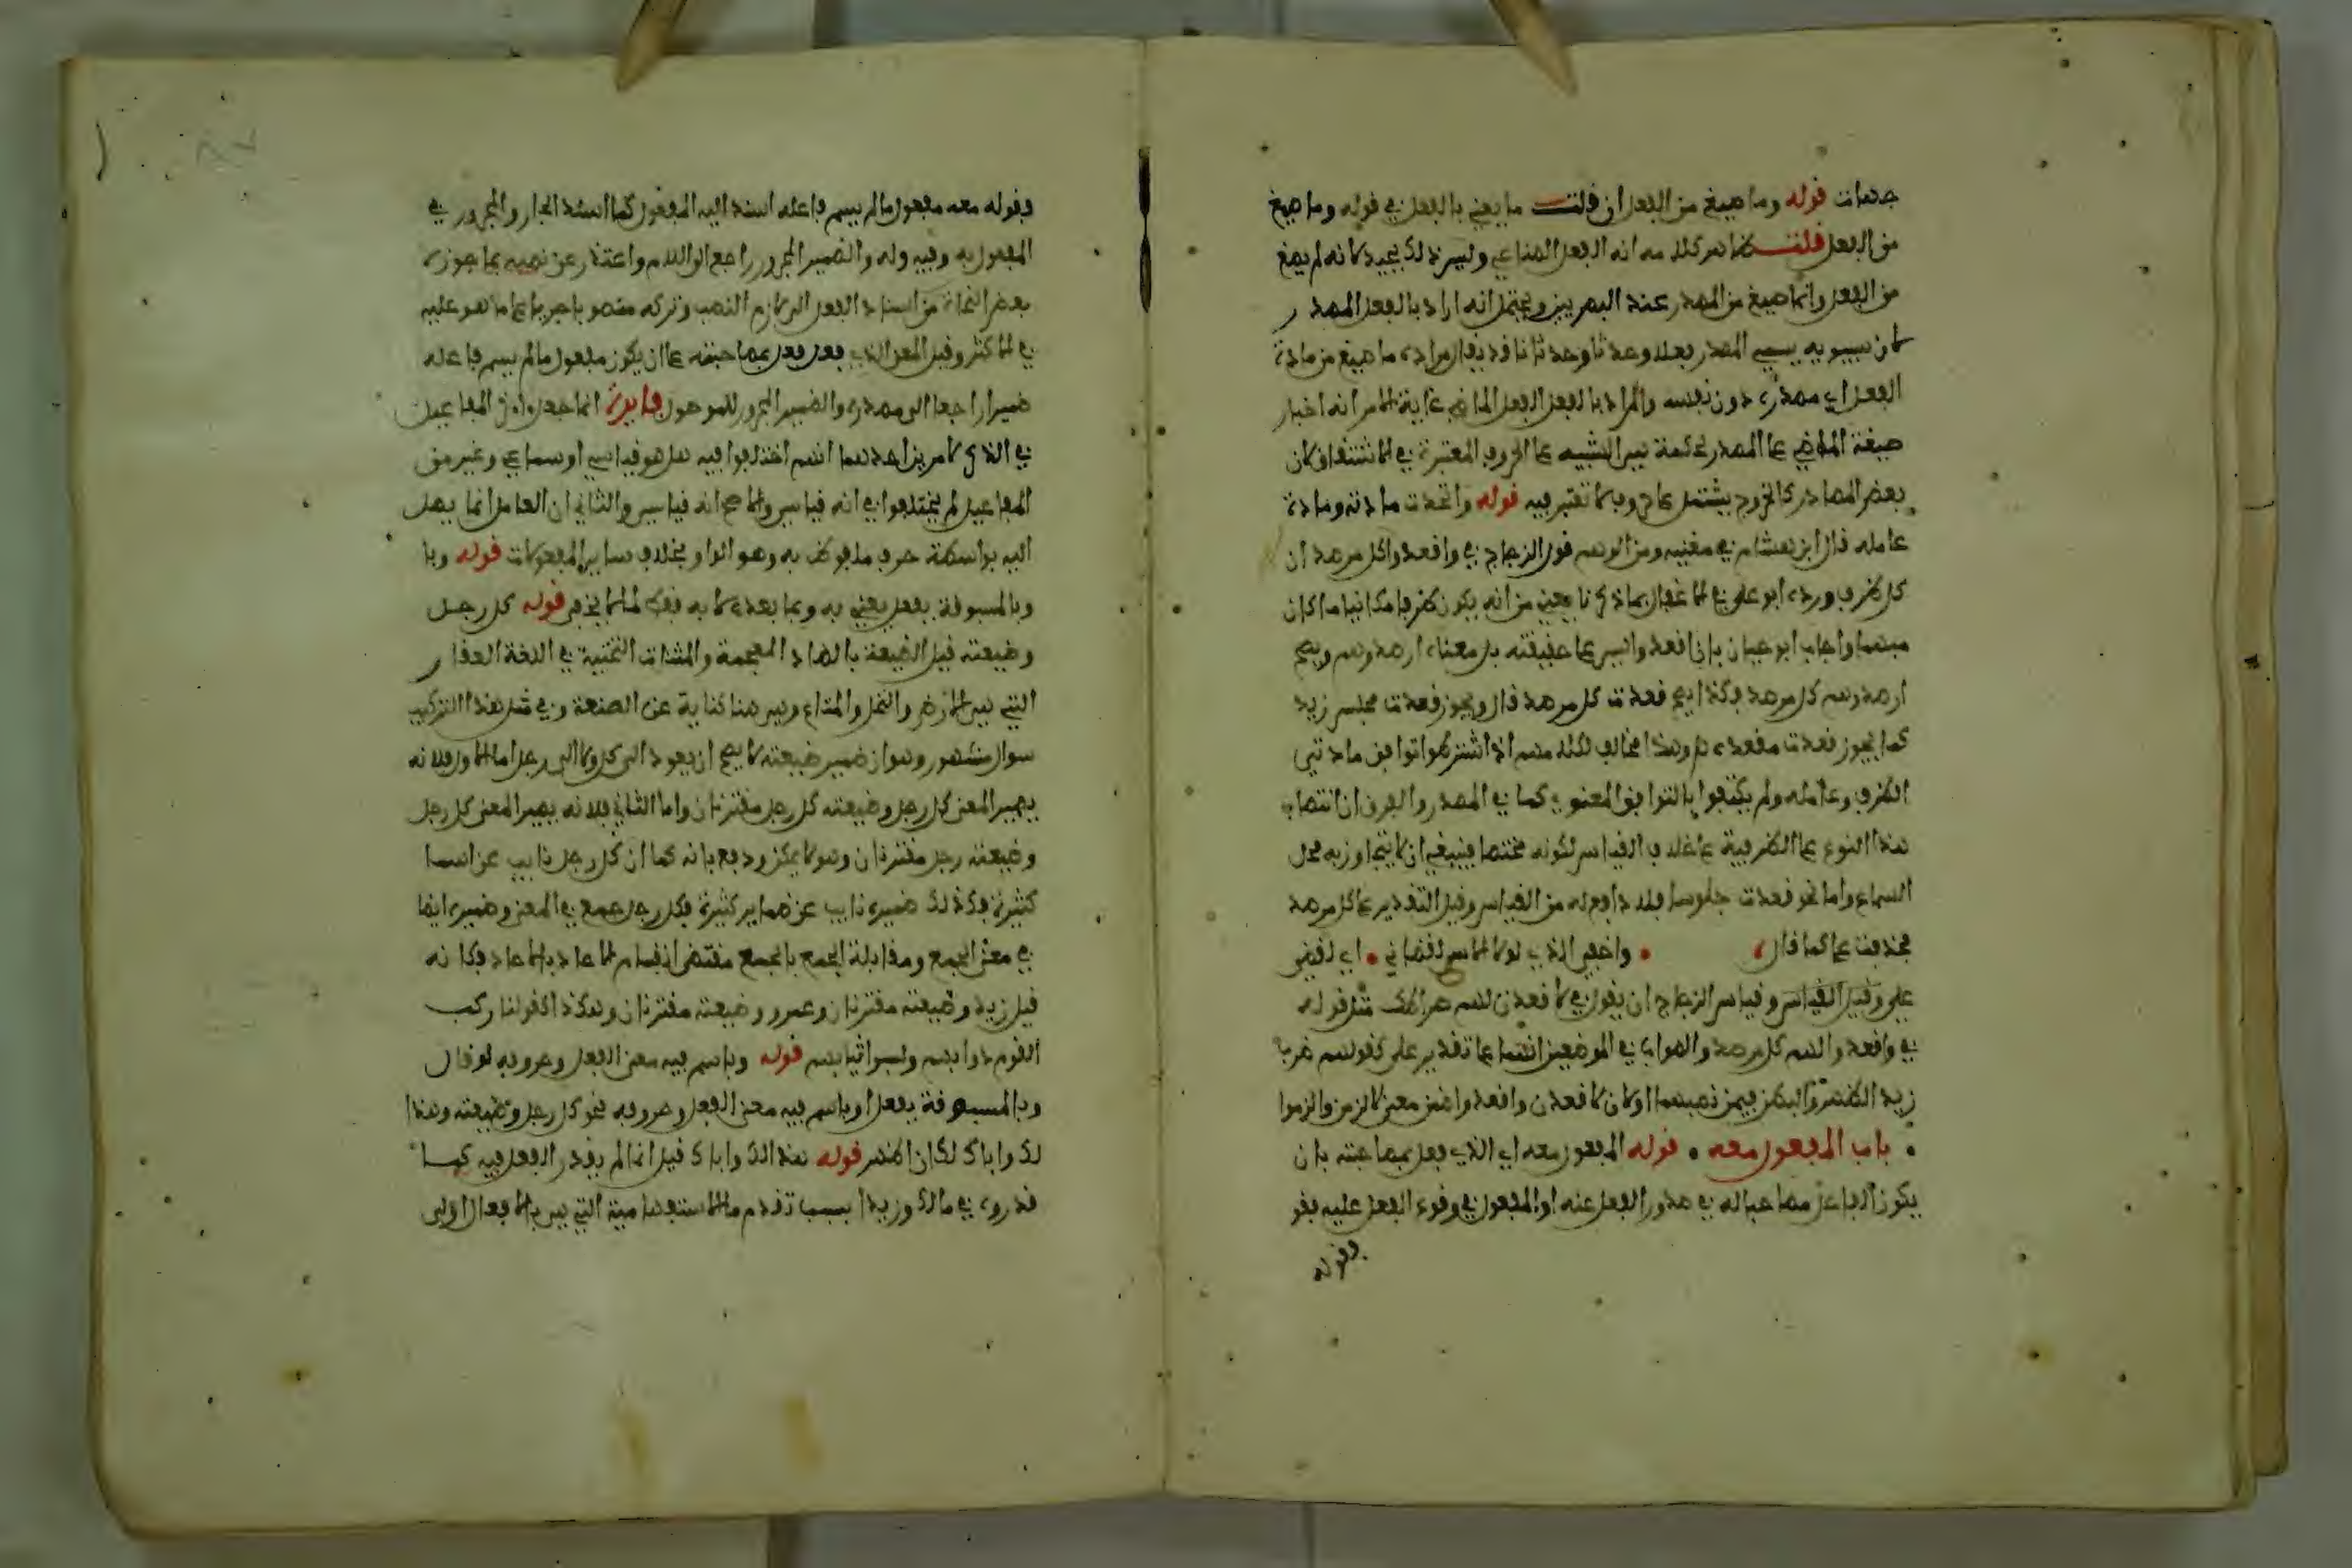 جهات قوله وما صيغ من الفعل ان قلت ما يعني بالفعل في قوله وما صيغ
من الفعل قلت ظاهر كلامه انه الفعل الصناعي وليس ذلك بجيد لانه لم يصغ
من الفعل وانما صيغ من المصدر عند البصريين ويحتمل انه اراد بالفعل المصدر
لان سيبويه يسمي المصدر فعلا وحدثا وحدثانا قد يقال مراده ما صيغ من مادة
الفعل اي مصدره دون نفسه والمراد بالفعل الفعل الماضي غاية الامر انه اختار
صيغة الماضي على المصدر
بعض المصادر كالخروج يشتمل على حروف لا تعتبر فيه قوله واتحدت مادته ومادة
عامله قال ابن هشام في مغنيه ومن الوهم قول الزجاج في واقعدوا كل مرصد ان
كل ظرف ورده ابو علي في الاغفال بما ذكرنا يعني من انه يكون ظرفا مكانيا ما كان
مبهما واجاب ابو حيان بان اقعدوا ليس على حقيقته بل معناه ارصدوهم ويصح
ارصدوهم كل مرصد فكذا يصح قعدت كل مرصد قال ويجوز قعدت مجلس زيد
كما يجوز قعدت مقعده وهذا مخالف لكلامهم اذ اشترطوا توافق مادتي
الظرف وعامله ولم يكتفوا بالتوافق المعنوي كما في المصدر والفرق ان انتصاب
هذا النوع على الظرفية على خلاف القياس لكونه مختصا فينبغي ان لا يتجاوز به محل
السماع واما نحو قعدت جلوسا فلا دافع له من القياس وقيل التقدير على كل مرصد
فحذفت على كما قال واخفي الذي لولا الاسى لقضاني اي لقضى
علي وقيل القياس وقياس الزجاج ان يقول في لاقعدن لهم صراطك مثل قوله
في واقعدوا لهم كل مرصد والصواب في الموضعين انهما على تقدير على كقولهم ضرب
زيد الظهر والبطن فيمن نصبهما او كان لاقعدن واقعدوا ضمن معنى لالزمن والزموا
باب المفعول معه قوله المفعول معه اي الذي فعل بمصاحبته بان
يكون الفاعل مصاحبا له في صدور الفعل عنه او المفعول في وقوع الفعل عليه فقو
فقوله
فقوله معه مفعول ما لم يسم فاعله اسند اليه المفعول كما اسند الجار والمجرور في
المفعول به وفيه وله والضمير المجرور راجع الى اللام واعتذر عن نصبه بما جوزه
بعض النحاة من اسناد الفعل الى لازم النصب وتركه منصوبا جريا على ما هو عليه
في الاكثر وقيل المعنى الذي فعل فعل بمصاحبته على ان يكون مفعول ما لم يسم فاعله
ضميرا راجعا الى مصدره والضمير المجرور للموصول فايدة انما جعل اخر المفاعيل
في الذكر لامرين احدهما انهم اختلفوا فيه هل هو قياسي او سماعي وغيره من
المفاعيل لم يختلفوا في انه قياس والاصح انه قياس والثاني ان العامل انما يصل
اليه بواسطة حرف ملفوظ به وهو الواو بخلاف ساير المفعولات قوله وبا
وبالمسبوقة بفعل يعني به وبما بعده لا به فقط لما لا يخفى قوله كل رجل
وضيعته قيل الضيعة بالضاد المعجمة والمثناة التحتية في اللغة العقار
التي هي الارض والنخل والمتاع وهي هنا كناية عن الصنعة وفي مثل هذا التركيب
سوال مشهور وهو ان ضمير ضيعته لا يصح ان يعود الى كل ولا الى رجل اما الاول فلانه
يصير المعنى كل رجل وضيعته كل رجل مقترنان واما الثاني فلانه يصير المعنى كل رجل
وضيعته رجل مقترنان وهو لا يمكن ودفع بانه كما ان كل رجل نايب عن اسما
كثيرة فكذلك ضميره نايب عن ضماير كثيرة فكل رجل جمع في المعنى وضميره ايضا
في معنى الجمع ومقابلة الجمع بالجمع مقتضى انقسام الاحاد بالاحاد فكانه
قيل زيد وضيعته مقترنان وعمرو وضيعته مقترنان وهكذا كقولنا ركب
القوم دوابهم ولبسوا ثيابهم قوله وباسم فيه معنى الفعل وحروفه لو قال
وبالمسبوقة بفعل او باسم فيه معنى الفعل وحروفه نحو كل رجل وضيعته وهذا
لك واباك لكان اظهر قوله هذا لك واباك قيل انما لم يقدر الفعل فيه كما
قدروه في مالك وزيدا بسبب تقدم ما الاستفهامية التي هي بالافعال اولى